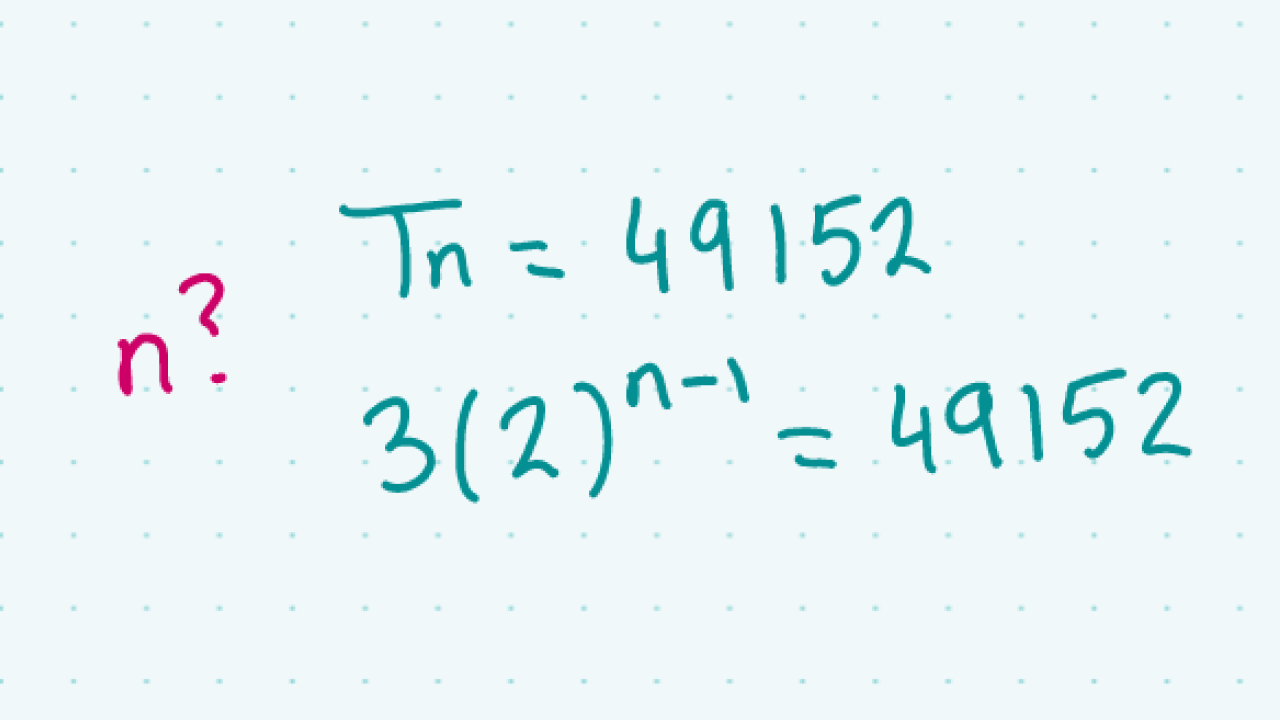 n?
Tn = 49152
3(2)^{n-1} = 49152